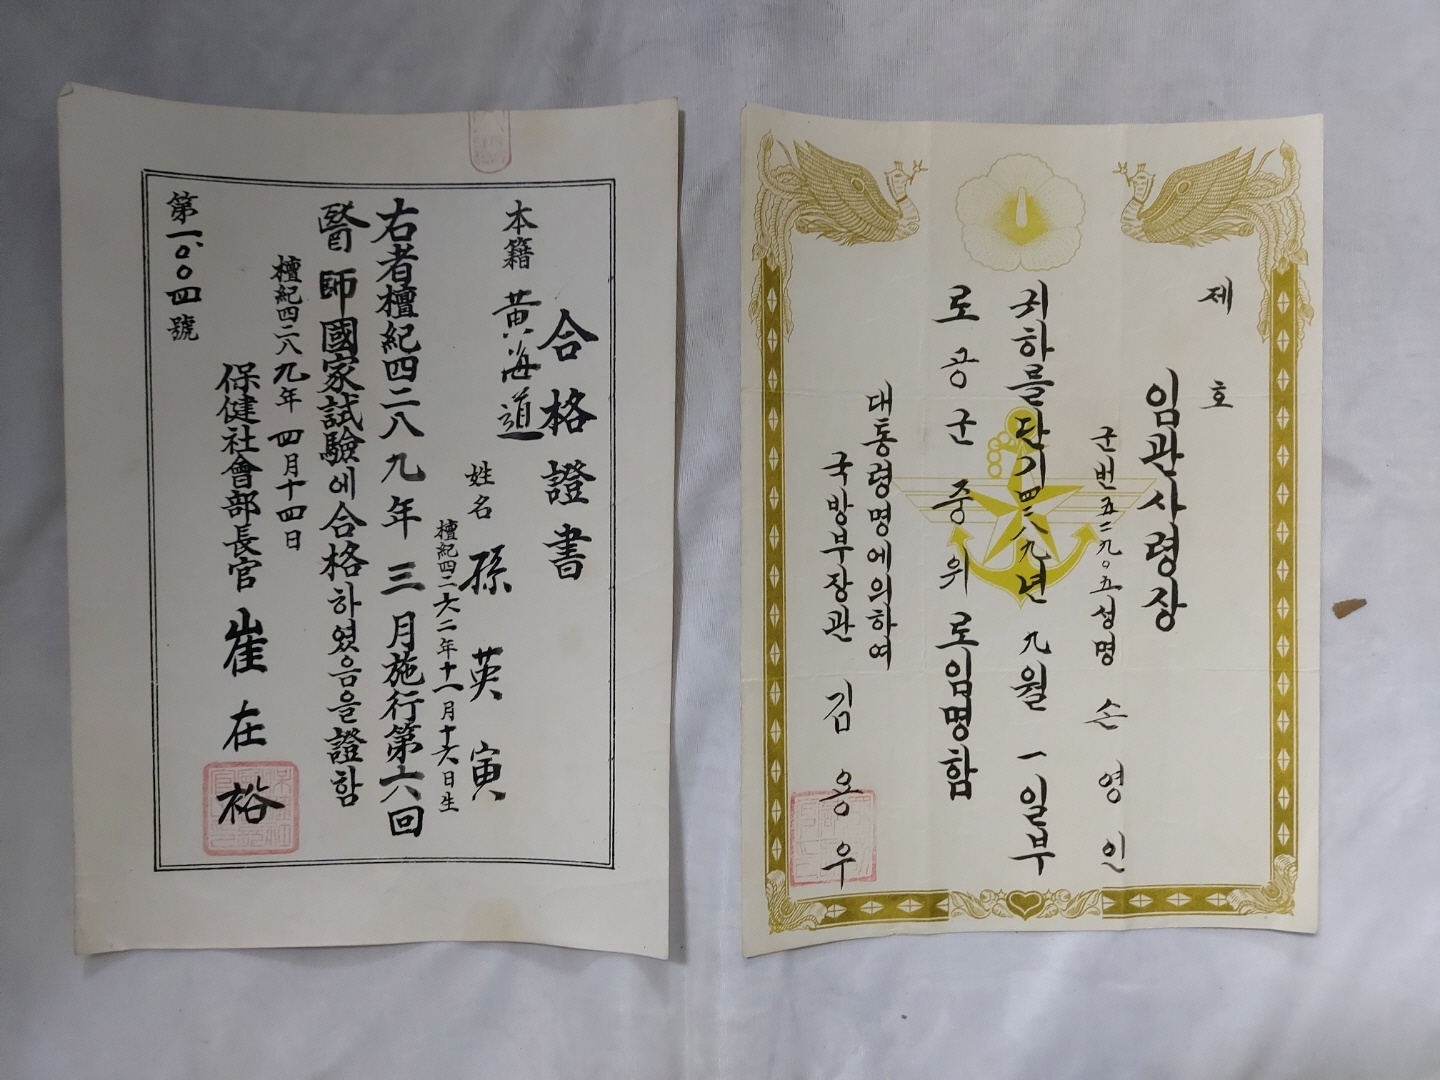 合格證書
本籍 黃海道
姓名 孫英寅
檀紀四二六二年十一月十六日生
右者檀紀四二八九年三月施行第六回
醫師國家試驗에合格하였음을證함
檀紀四二八九年四月十四日
保健社會部長官 崔在裕
第一〇〇四號
제 호
임관사령장
군번五二九〇五성명 손영인
귀하를단기四二八九년九월一일부
로공군중위로임명함
대통령명에의하여
국방부장관 김용우